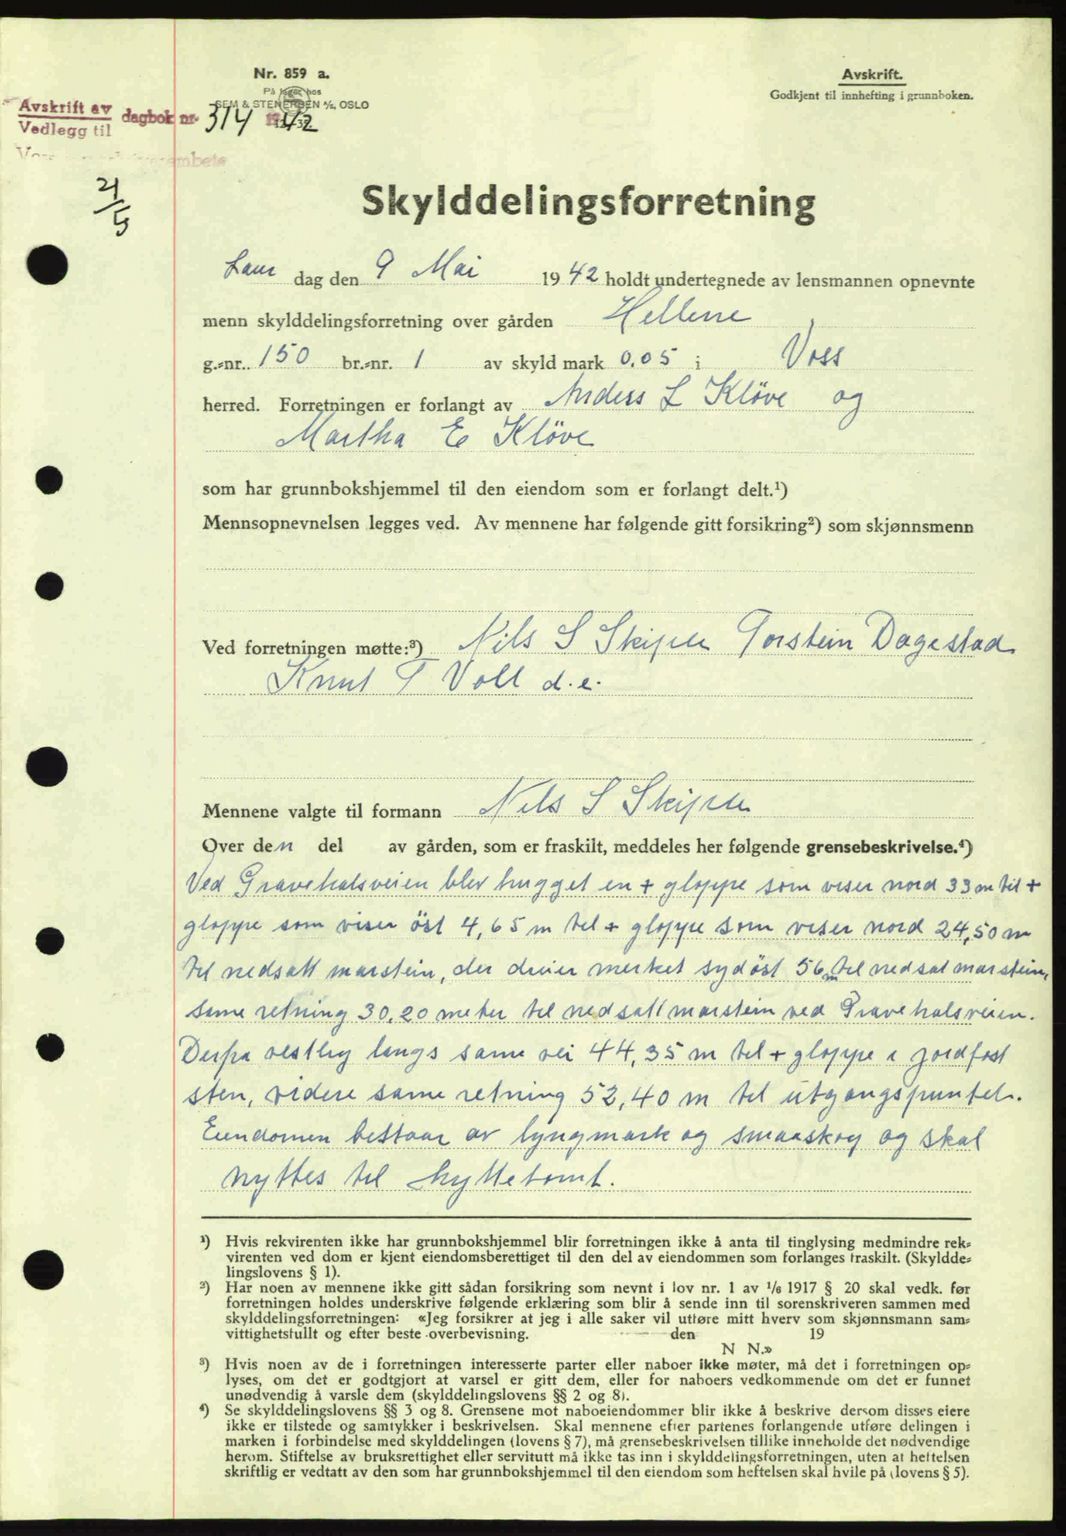 Nr. 859 a.
På lager hos
SEM & STENERSEN A/S, OSLO
Avskrift.
Godkjent til innhefting i grunnboken.
Avskrift av
Vedlegg til
dagbok nr. 314 1942
21/5
Skylddelingsforretning
Laur dag den 9 Mai 1942 holdt undertegnede av lensmannen opnevnte
menn skylddelingsforretning over gården Hellene
g.-nr. 150 br.-nr. 1 av skyld mark 0,05 i Voss
herred. Forretningen er forlangt av Anders L Kløve og
Martha E Kløve
som har grunnbokshjemmel til den eiendom som er forlangt delt.¹)
Mennsopnevnelsen legges ved. Av mennene har følgende gitt forsikring²) som skjønnsmenn
Ved forretningen møtte:³) Nils S Skiple Torstein Dagestad
Knut T Voll d.e.
Mennene valgte til formann Nils S Skiple
Over den del av gården, som er fraskilt, meddeles her følgende grensebeskrivelse.⁴)
Ved Gravehalsveien blev hugget en + gloppe som viser nord 33 m til +
gloppe som viser öst 4,65 m til + gloppe som viser nord 24,50 m
til nedsatt marstein, der dreier merket sydöst 56 m til nedsat marstein,
same retning 30,20 meter til nedsatt marstein ved Gravehalsveien.
Derfra vestlig langs same vei 44,35 m til + gloppe i jordfast
sten, videre same retning 52,40 m til utgangspuntet.
Eiendomen bestaar av lyngmark og smaaskog og skal
nyttes til hyttetomt.
¹) Hvis rekvirenten ikke har grunnbokshjemmel blir forretningen ikke å anta til tinglysing medmindre rek-
virenten ved dom er kjent eiendomsberettiget til den del av eiendommen som forlanges fraskilt. (Skyldde-
lingslovens § 1).
²) Har noen av mennene ikke gitt sådan forsikring som nevnt i lov nr. 1 av 1/6 1917 § 20 skal vedk. før
forretningen holdes underskrive følgende erklæring som blir å sende inn til sorenskriveren sammen med
skylddelingsforretningen: «Jeg forsikrer at jeg i alle saker vil utføre mitt hverv som skjønnsmann sam-
vittighetsfullt og efter beste overbevisning. den 19
N N.»
³) Hvis noen av de i forretningen interesserte parter eller naboer ikke møter, må det i forretningen op-
lyses, om det er godtgjort at varsel er gitt dem, eller for naboers vedkommende om det er funnet
unødvendig å varsle dem (skylddelingslovens §§ 2 og 8).
⁴) Se skylddelingslovens §§ 3 og 8. Grensene mot naboeiendommer blir ikke å beskrive dersom disses eiere
ikke er tilstede og samtykker i beskrivelsen. Skal mennene efter partenes forlangende utføre delingen i
marken i forbindelse med skylddelingen (lovens § 7), må grensebeskrivelsen tillike inneholde det nødvendige
herom. Stiftelse av bruksrettighet eller servitutt må ikke tas inn i skylddelingsforretningen, uten at heftelsen
skriftlig er vedtatt av den som har grunnbokshjemmel til den eiendom som heftelsen skal hvile på (lovens § 5).